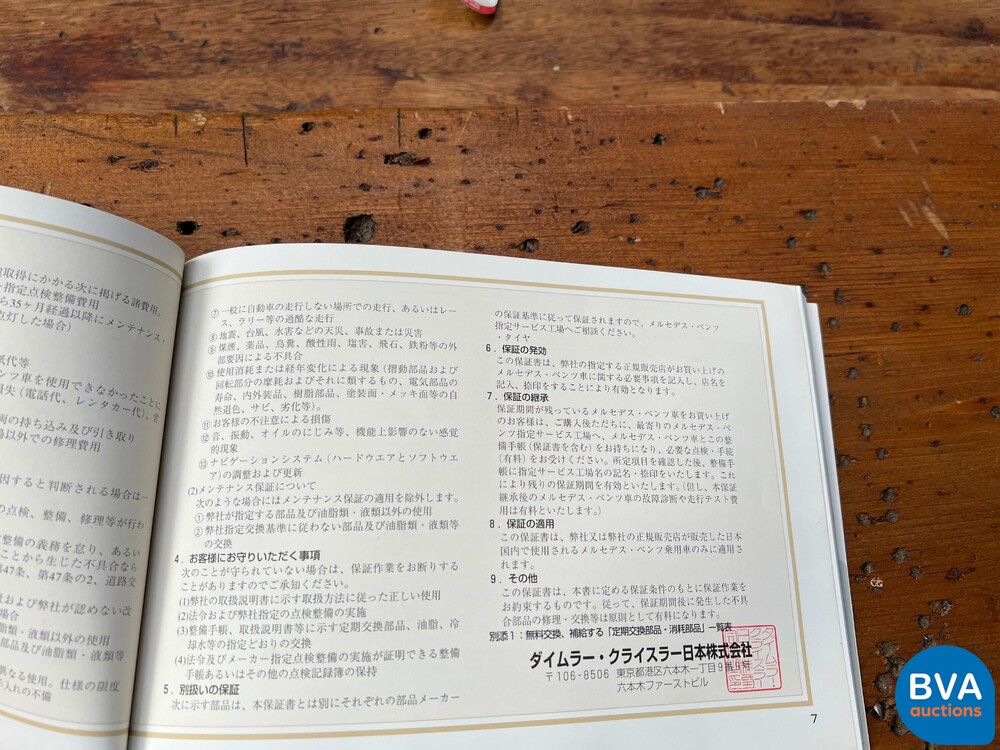 取得にかかる次に掲げる諸費用。
指定点検整備費用
ら35ヶ月経過以降にメンテナンス
点灯した場合）
紙代等
ンツ車を使用できなかったことに
損失（電話代、レンタカー代）、営
両の持ち込み及び引き取り
場以外での修理費用
因すると判断される場合は一
の点検、整備、修理等が行わ
整備の義務を怠り、あるい
ことから生じた不具合なら
第47条、第47条の2、道路交
及び弊社が認めない改
場合
油脂類・液類以外の使用
部品及び油脂類・液類等
異なる使用。仕様の限度
手入れの不備
⑦一般に自動車の走行しない場所での走行、あるいはレー
ス、ラリー等の過酷な走行
⑧地震、台風、水害などの天災、事故または災害
⑨煤煙、薬品、鳥糞、酸性雨、塩害、飛石、鉄粉等の外
部要因による不具合
⑩使用消耗または経年変化による現象（摺動部品および
回転部分の摩耗およびそれに類するもの、電気部品の
寿命、内外装品、樹脂部品、塗装面・メッキ面等の自
然退色、サビ、劣化等）。
⑪お客様の不注意による損傷
⑫音、振動、オイルのにじみ等、機能上影響のない感覚
的現象
⑬ナビゲーションシステム（ハードウエアとソフトウエ
ア）の調整および更新
(2)メンテナンス保証について
次のような場合にはメンテナンス保証の適用を除外します。
①弊社が指定する部品及び油脂類・液類以外の使用
②弊社指定交換基準に従わない部品及び油脂類・液類等
の交換
4．お客様にお守りいただく事項
次のことが守られていない場合は、保証作業をお断りする
ことがありますのでご承知ください。
(1)弊社の取扱説明書に示す取扱方法に従った正しい使用
(2)法令および弊社指定の点検整備の実施
(3)整備手帳、取扱説明書等に示す定期交換部品、油脂、冷
却水等の指定どおりの交換
(4)法令及びメーカー指定点検整備の実施が証明できる整備
手帳あるいはその他の点検記録簿の保持
5．別扱いの保証
次に示す部品は、本保証書とは別にそれぞれの部品メーカー
の保証基準に従って保証されますので、メルセデス・ベンツ
指定サービス工場へご相談ください。
・タイヤ
6．保証の発効
この保証書は、弊社の指定する正規販売店がお買い上げの
メルセデス・ベンツ車に関する必要事項を記入し、店名を
記入、捺印をすることにより有効となります。
7．保証の継承
保証期間が残っているメルセデス・ベンツ車をお買い上げ
のお客様は、ご購入後ただちに、最寄りのメルセデス・ベ
ンツ指定サービス工場へ、メルセデス・ベンツ車とこの整
備手帳（保証書を含む）をお持ちになり、必要な点検・手続
（有料）をお受けください。所定項目を確認した後、整備手
帳に指定サービス工場名の記名・捺印をいたします。これ
により残りの保証期間を有効といたします。（但し、本保証
継承後のメルセデス・ベンツ車の故障診断や走行テスト費
用は有料といたします。）
8．保証の適用
この保証書は、弊社又は弊社の正規販売店が販売した日本
国内で使用されるメルセデス・ベンツ乗用車のみに適用さ
れます。
9．その他
この保証書は、本書に定める保証条件のもとに保証作業を
お約束するものです。従って、保証期間後に発生した不具
合部品の修理・交換等は原則として有料になります。
別添1：無料交換、補給する「定期交換部品・消耗部品」一覧表
ダイムラー・クライスラー日本株式会社
〒106-8506 東京都港区六本木一丁目9番9号
六本木ファーストビル
7
BVA
auctions